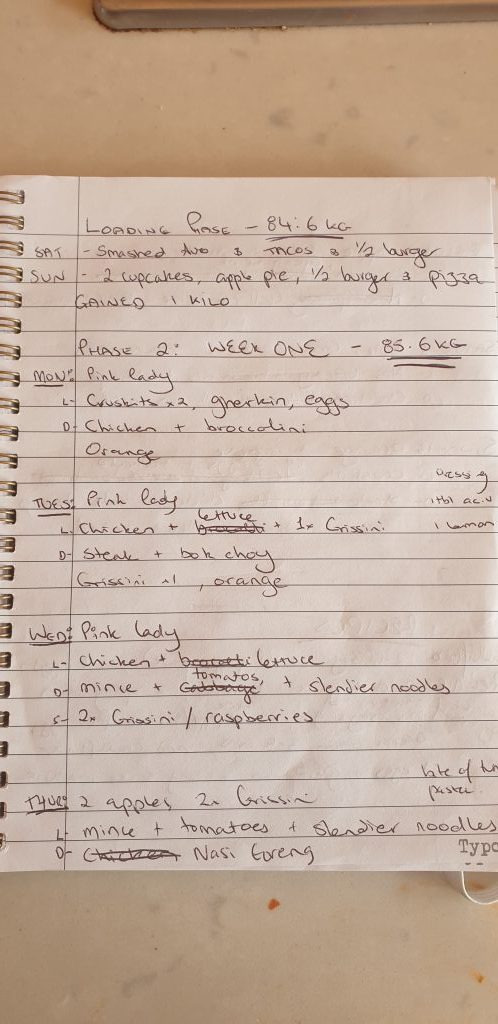 LOADING PHASE - 84.6 KG
SAT - Smashed avo & TACOS & 1/2 burger
SUN - 2 cupcakes, apple pie, 1/2 burger & pizza
GAINED 1 KILO
PHASE 2: WEEK ONE - 85.6 KG
MON: Pink lady
L- Cruskits x2, gherkin, eggs
D- Chicken + broccolini
Orange
TUES: Pink lady
L- Chicken + lettuce + 1x Grissini
D- Steak + bok choy
Grissini x1, orange
dressing
1 tbl acv
1 lemon
WED: Pink lady
L- Chicken + lettuce
D- mince + tomatos, + slendier noodles
S- 2x Grissini / raspberries
THUR: 2 apples 2x Grissini
bite of
L- mince + tomatoes + slendier noodles
D- Nasi Goreng
Typo